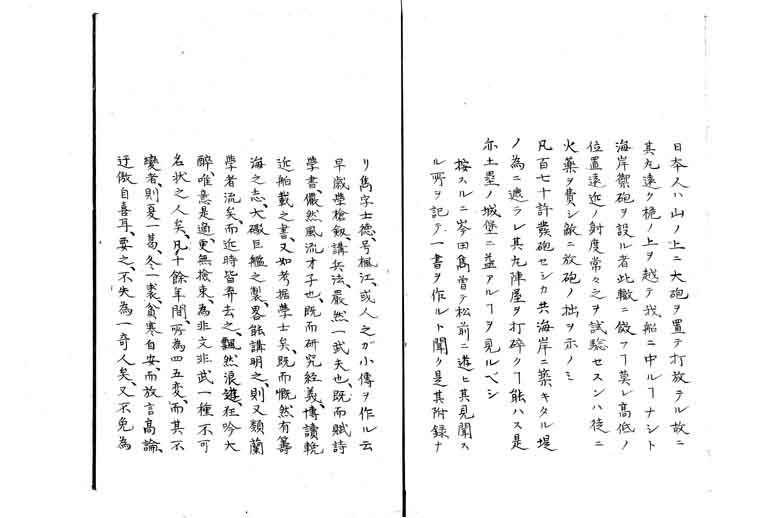 日本人ハ山ノ上ニ大砲ヲ置テ打放テル故ニ
其丸遠ク桅ノ上ヲ越テ我船ニ中ルヿナシト
海岸禦砲ヲ設ル者此轍ニ倣フヿ莫レ高低ノ
位置遠近ノ射度常々之ヲ試驗セスンハ徒ニ
火藥ヲ費シ敵ニ放砲ノ拙ヲ示ノミ
凡百七十許發砲セシカ共海岸ニ築キタル堤
ノ為ニ遮ラレ其丸陣屋ヲ打碎クヿ能ハス是
亦土壘ノ城堡ニ益アルヿヲ見ルベシ
按スルニ岑田雋曽テ松前ニ遊ヒ其見聞ス
ル所ヲ記テ一書ヲ作ルト聞ク是其附録ナ
リ雋字士德、号楓江、或人之ガ小傳ヲ作ル云
早歳學槍劔、講兵法、嚴然一武夫也、既而賦詩
學書、儼然風流才子也、既而研究經義、博讀輓
近舶載之書、又如考据學士矣、既而慨然有籌
海之志、大礮巨艦之製畧能講明之、則又類蘭
學者流矣、而近時皆弃去之、飄然浪遊、狂吟大
醉、唯意是適、更無撿束、為非文非武一種不可
名状之人矣、凡十餘年間、所為四五変、而其不
變者、則夏一葛、冬一裘、貧寒自安、而放言高論、
迂傲自喜耳、要之、不失為一奇人矣、又不免為